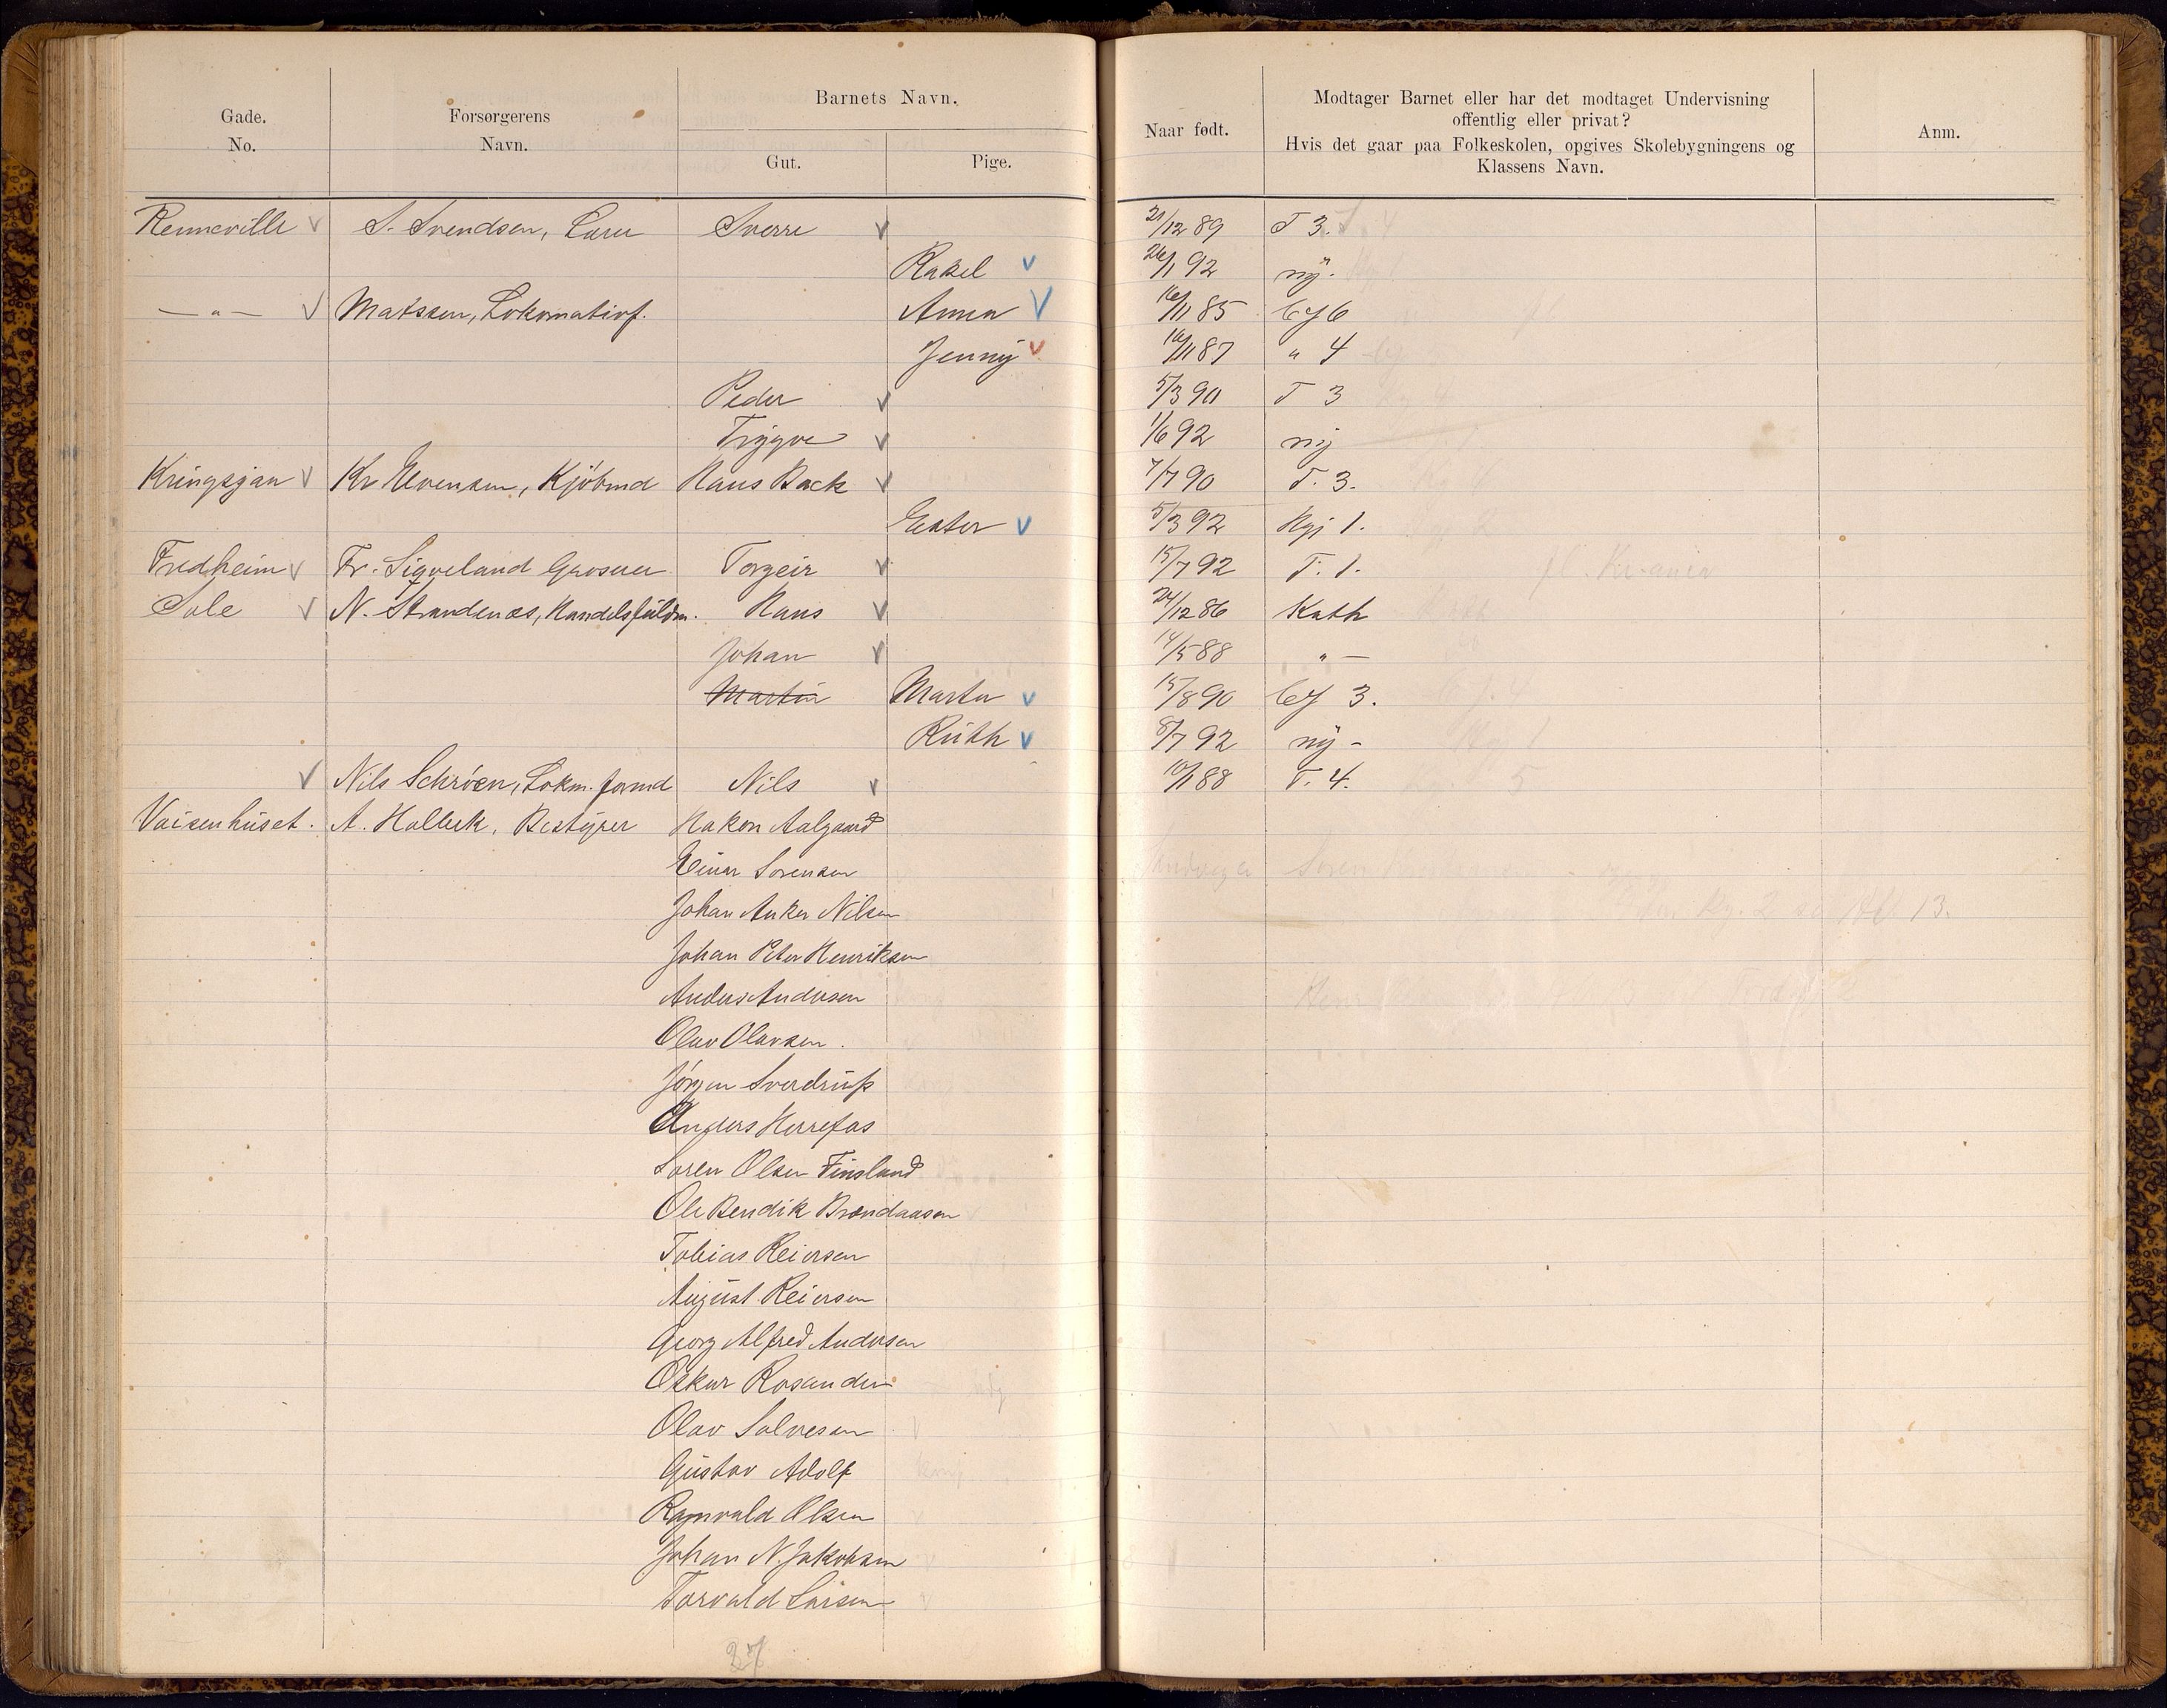 Gade. No. Forsørgerens Navn. Barnets Navn. Gut. Pige. Naar født. Modtager Barnet eller har det modtaget Undervisning offentlig eller privat? Hvis det gaar paa Folkeskolen, opgives Skolebygningens og Klassens Navn. Anm.
Renneville S. Svendsen, Lærer Sverre 21/12 89 T 3.
Rakel 26/1 92 ny.
— " — Matssen, Lokomativf. Anna 16/11 85 6
Jenny 16/11 87 " 4
Peder 5/3 90 T 3
Trygve 1/6 92 ny
Kringsjaa Kr Evensen, Kjöbmd Hans Back 7/7 90 T. 3.
Ester 5/3 92 Kgj 1.
Fredheim Fr. Sigveland Grosserer Torgeir 15/7 92 T. 1. fl. Kr.ania
Sole N. Strandenæs, Handelsfuldm. Hans 24/12 86 Kath
Johan 14/5 88 " —
Martin Marta 15/8 90 3.
Ruth 8/7 92 ny -
Nils Schröen, Lokm. formd Nils 10/1 88 T. 4. 5
Vaisenhuset. A. Holbek, Bestyrer Hakon Aalgaard
Einar Sorensen
Johan Anker Nilsen
Johan Peter Henriksen
Anders Andersen
Olav Olavsen.
Jörgen Sverdrup
Anders Herrefos
Soren Olsen Finsland
Ole Bendik Brændaasen
Tobias Reiersen
August Reiersen
Georg Alfred Andersen
Oskar Rosander
Olav Salvesen
Gustav Adolf
Ragnvald Olsen
Johan N. Jakobsen
Torvald Larsen
27